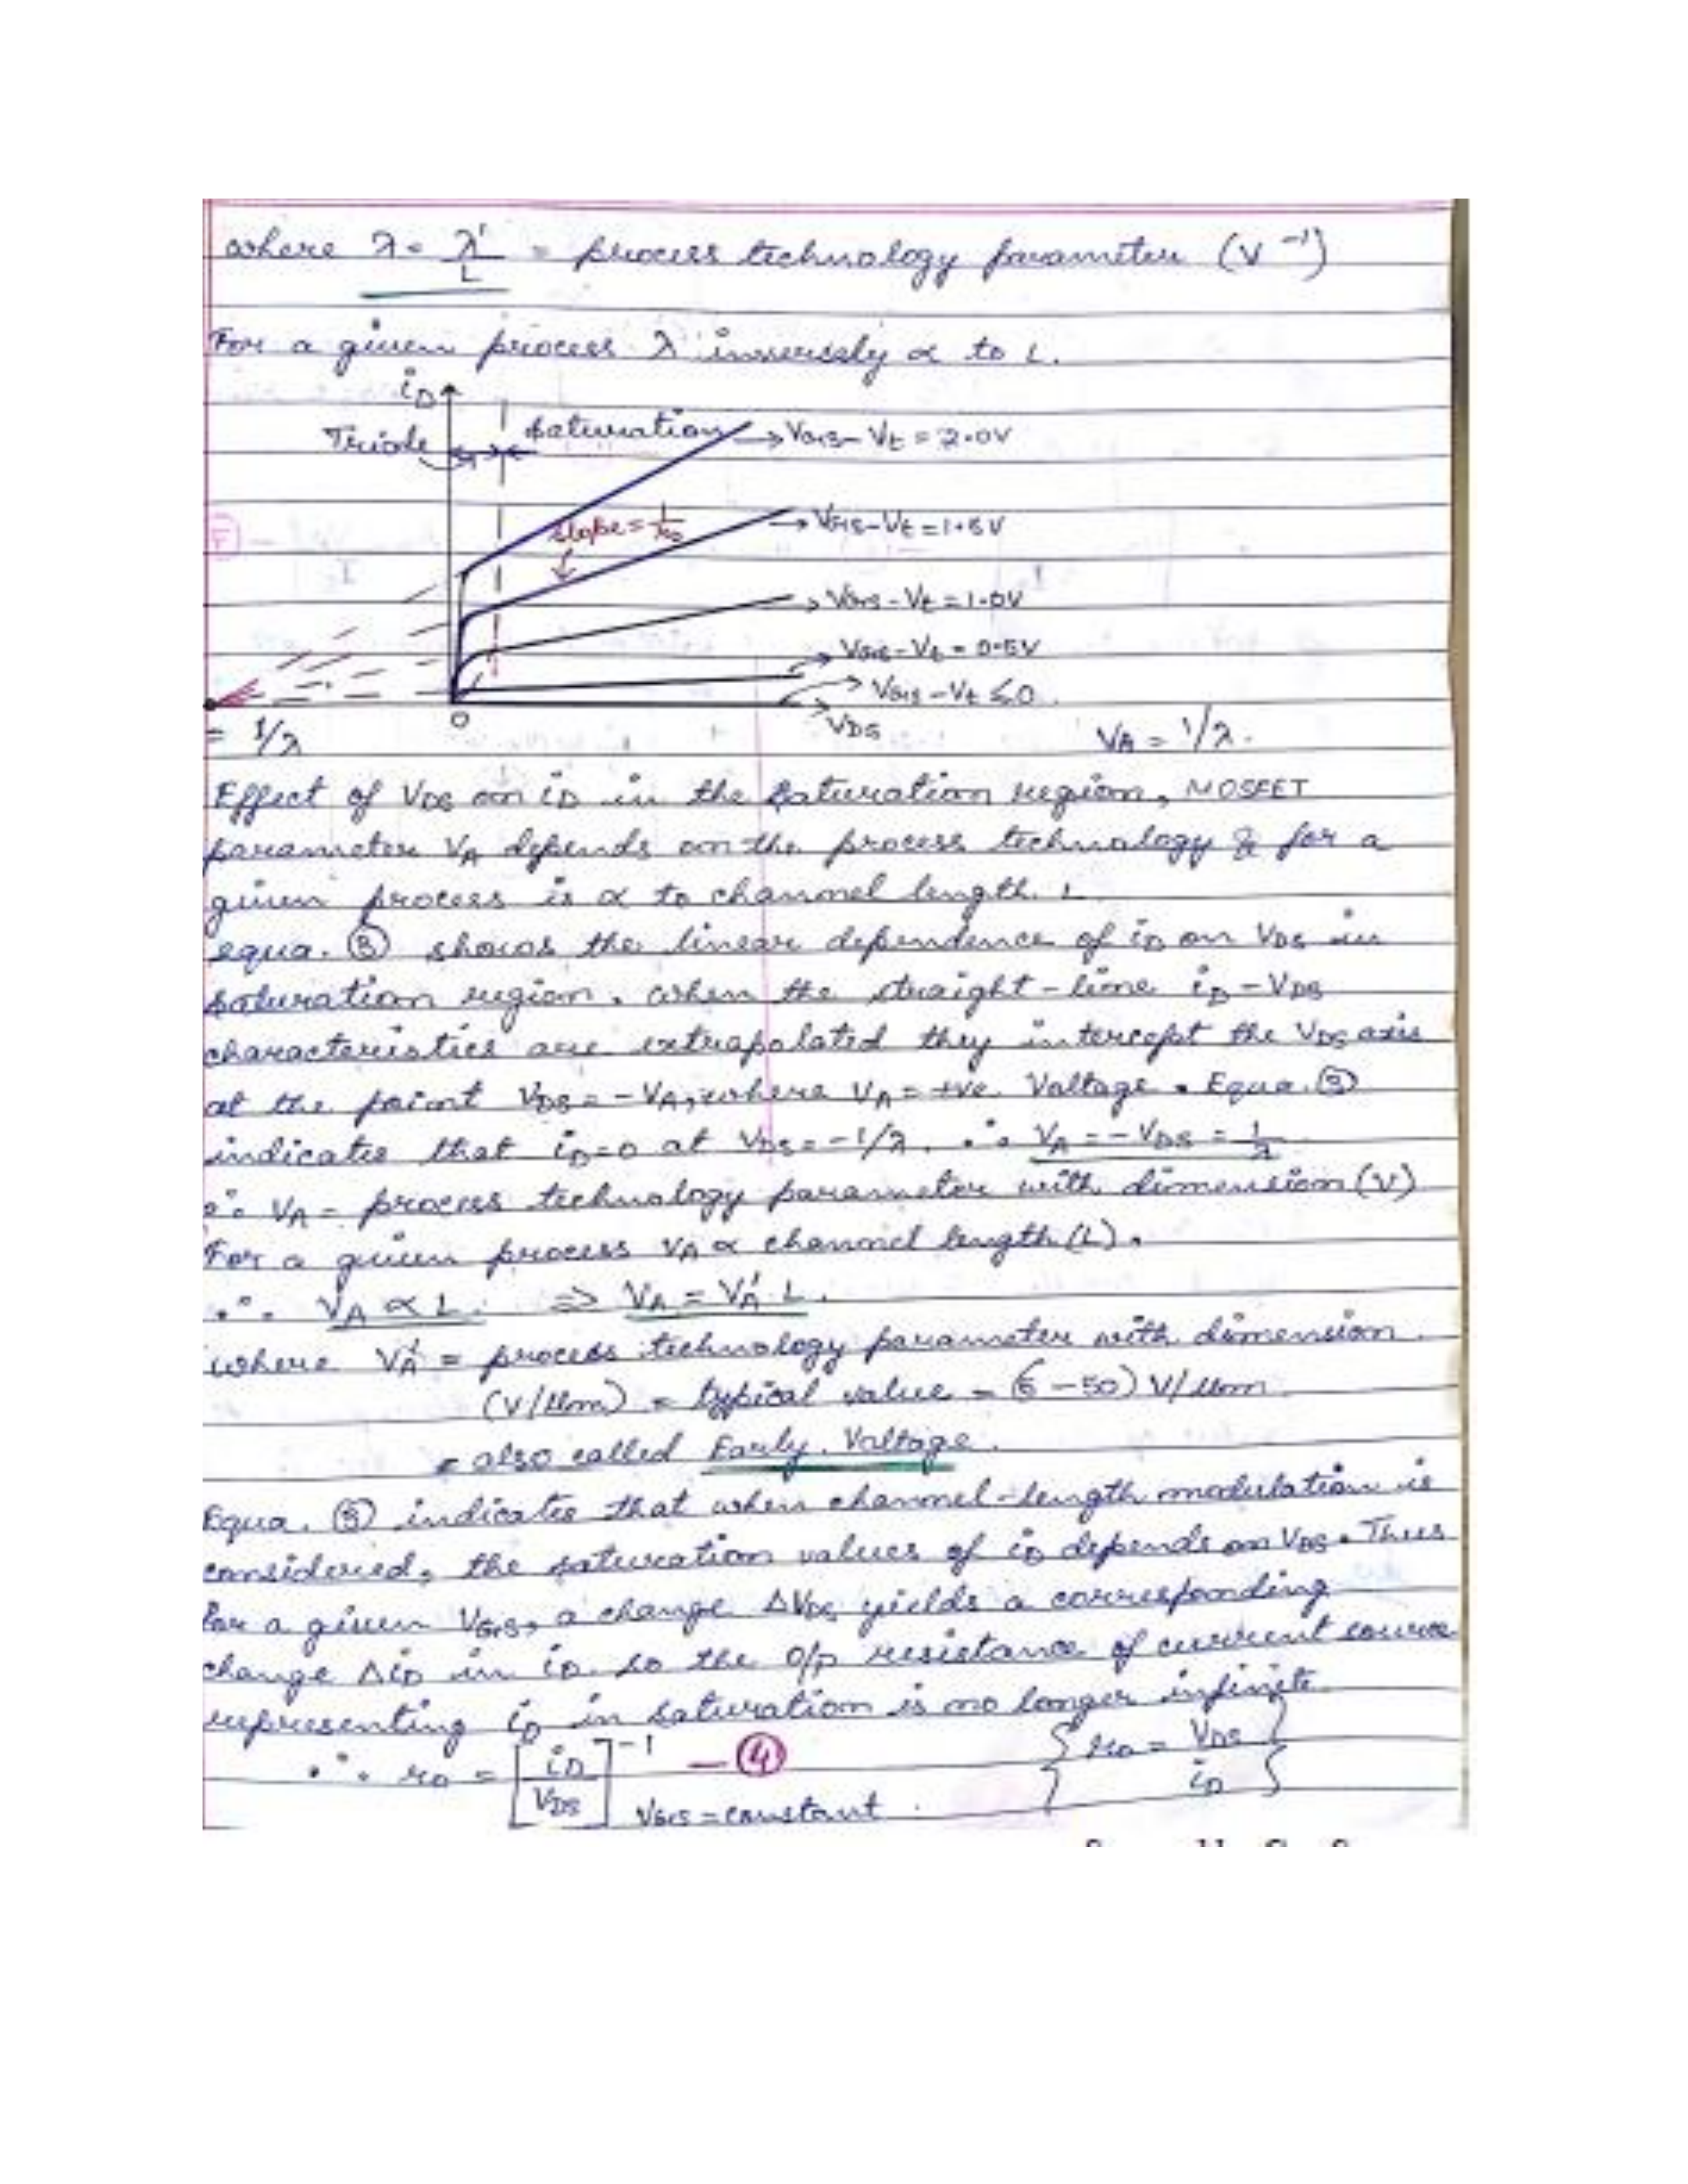 where λ = λ'/L = process technology parameter (V⁻¹)
For a given process λ inversely α to L.
iD
Triode
saturation
VGS - Vt = 2.0V
slope = 1/ro
VGS - Vt = 1.5V
VGS - Vt = 1.0V
VGS - Vt = 0.5V
VGS - Vt ≤ 0
0
VDS
= 1/λ
VA = 1/λ.
Effect of VDS on iD in the saturation region, MOSFET
parameter VA depends on the process technology & for a
given process is α to channel length L
equa. ③ shows the linear dependence of iD on VDS in
saturation region. when the straight-line iD - VDS
characteristics are extrapolated they intercept the VDS axis
at the point VDS = -VA, where VA = +ve Voltage. Equa. ③
indicates that iD=0 at VDS = -1/λ. ∴ VA = -VDS = 1/λ
∴ VA = process technology parameter with dimension (V)
For a given process VA α channel length (L).
∴ VA α L. ⇒ VA = VA' L.
where VA' = process technology parameter with dimension
(V/μm) = typical value = (5-50) V/μm
= also called Early Voltage.
Equa. ③ indicates that when channel-length modulation is
considered, the saturation values of iD depends on VDS. Thus
for a given VGS, a change ΔVDS yields a corresponding
change ΔiD in iD. so the o/p resistance of current source
representing iD in saturation is no longer infinite.
∴ ro = [iD/VDS]⁻¹ VGS = constant — ④ {ro = VDS/iD}